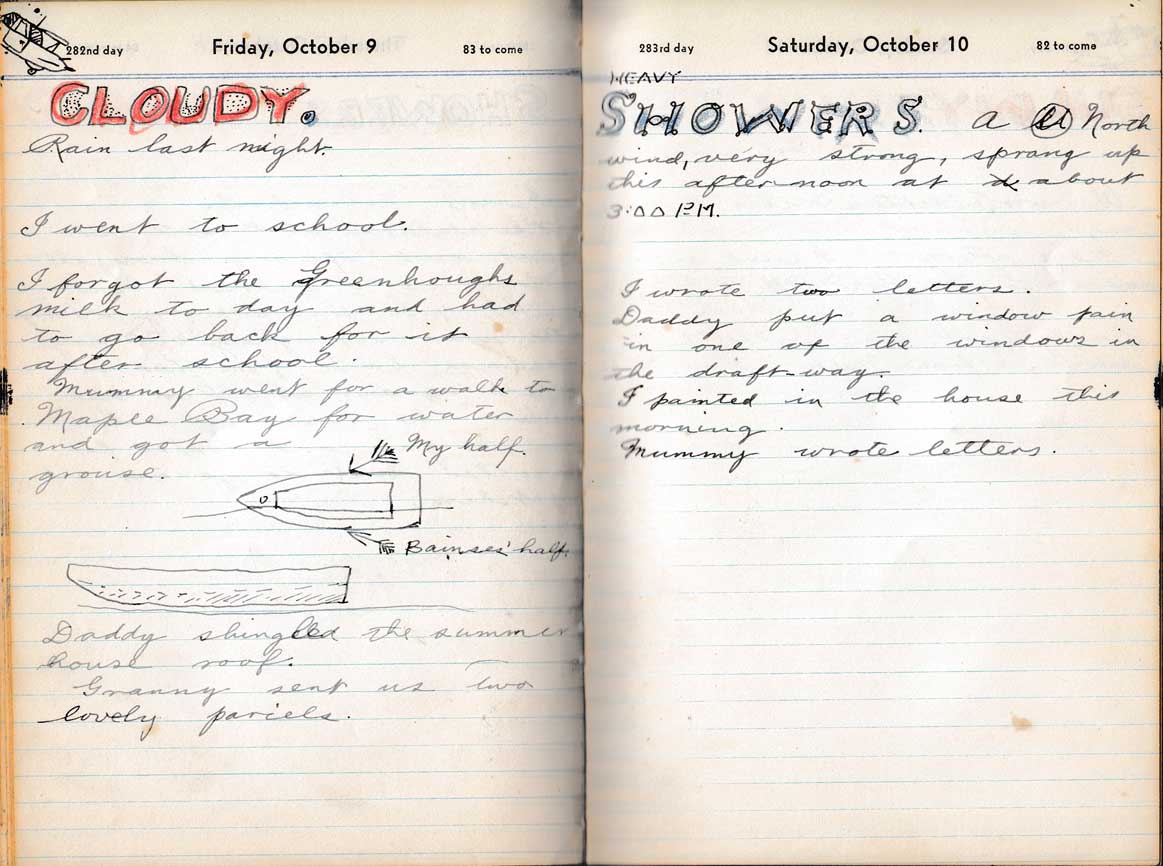 282nd day Friday, October 9 83 to come
CLOUDY.
Rain last night.
I went to school.
I forgot the Greenhoughs
milk to day and had
to go back for it
after school.
Mummy went for a walk to
Maple Bay for water
and got a
grouse.
My half.
Bainses' half.
Daddy shingled the summer
house roof.
Granny sent us two
lovely parcels.
283rd day Saturday, October 10 82 to come
HEAVY
SHOWERS. A North
wind, very strong, sprang up
this after-noon at about
3:00 P.M.
I wrote two letters.
Daddy put a window pain
in one of the windows in
the draft-way.
I painted in the house this
morning.
Mummy wrote letters.